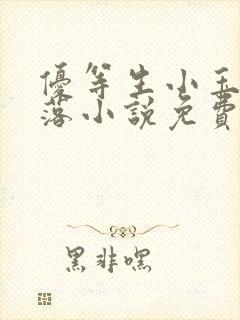 優等生小玉
落小說免費
黑非嘿